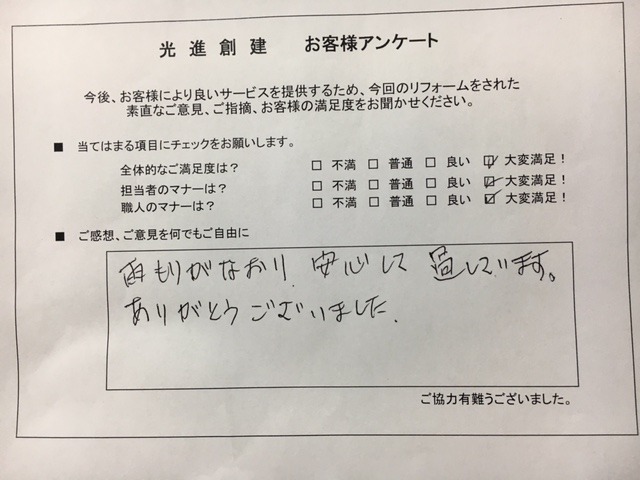 光進創建　お客様アンケート
今後、お客様により良いサービスを提供するため、今回のリフォームをされた
素直なご意見、ご指摘、お客様の満足度をお聞かせください。
■ 当てはまる項目にチェックをお願いします。
全体的なご満足度は？ □ 不満 □ 普通 □ 良い ☑ 大変満足！
担当者のマナーは？ □ 不満 □ 普通 □ 良い ☑ 大変満足！
職人のマナーは？ □ 不満 □ 普通 □ 良い ☑ 大変満足！
■ ご感想、ご意見を何でもご自由に
雨もりがなおり、安心して過しています。
ありがとうございました.
ご協力有難うございました。